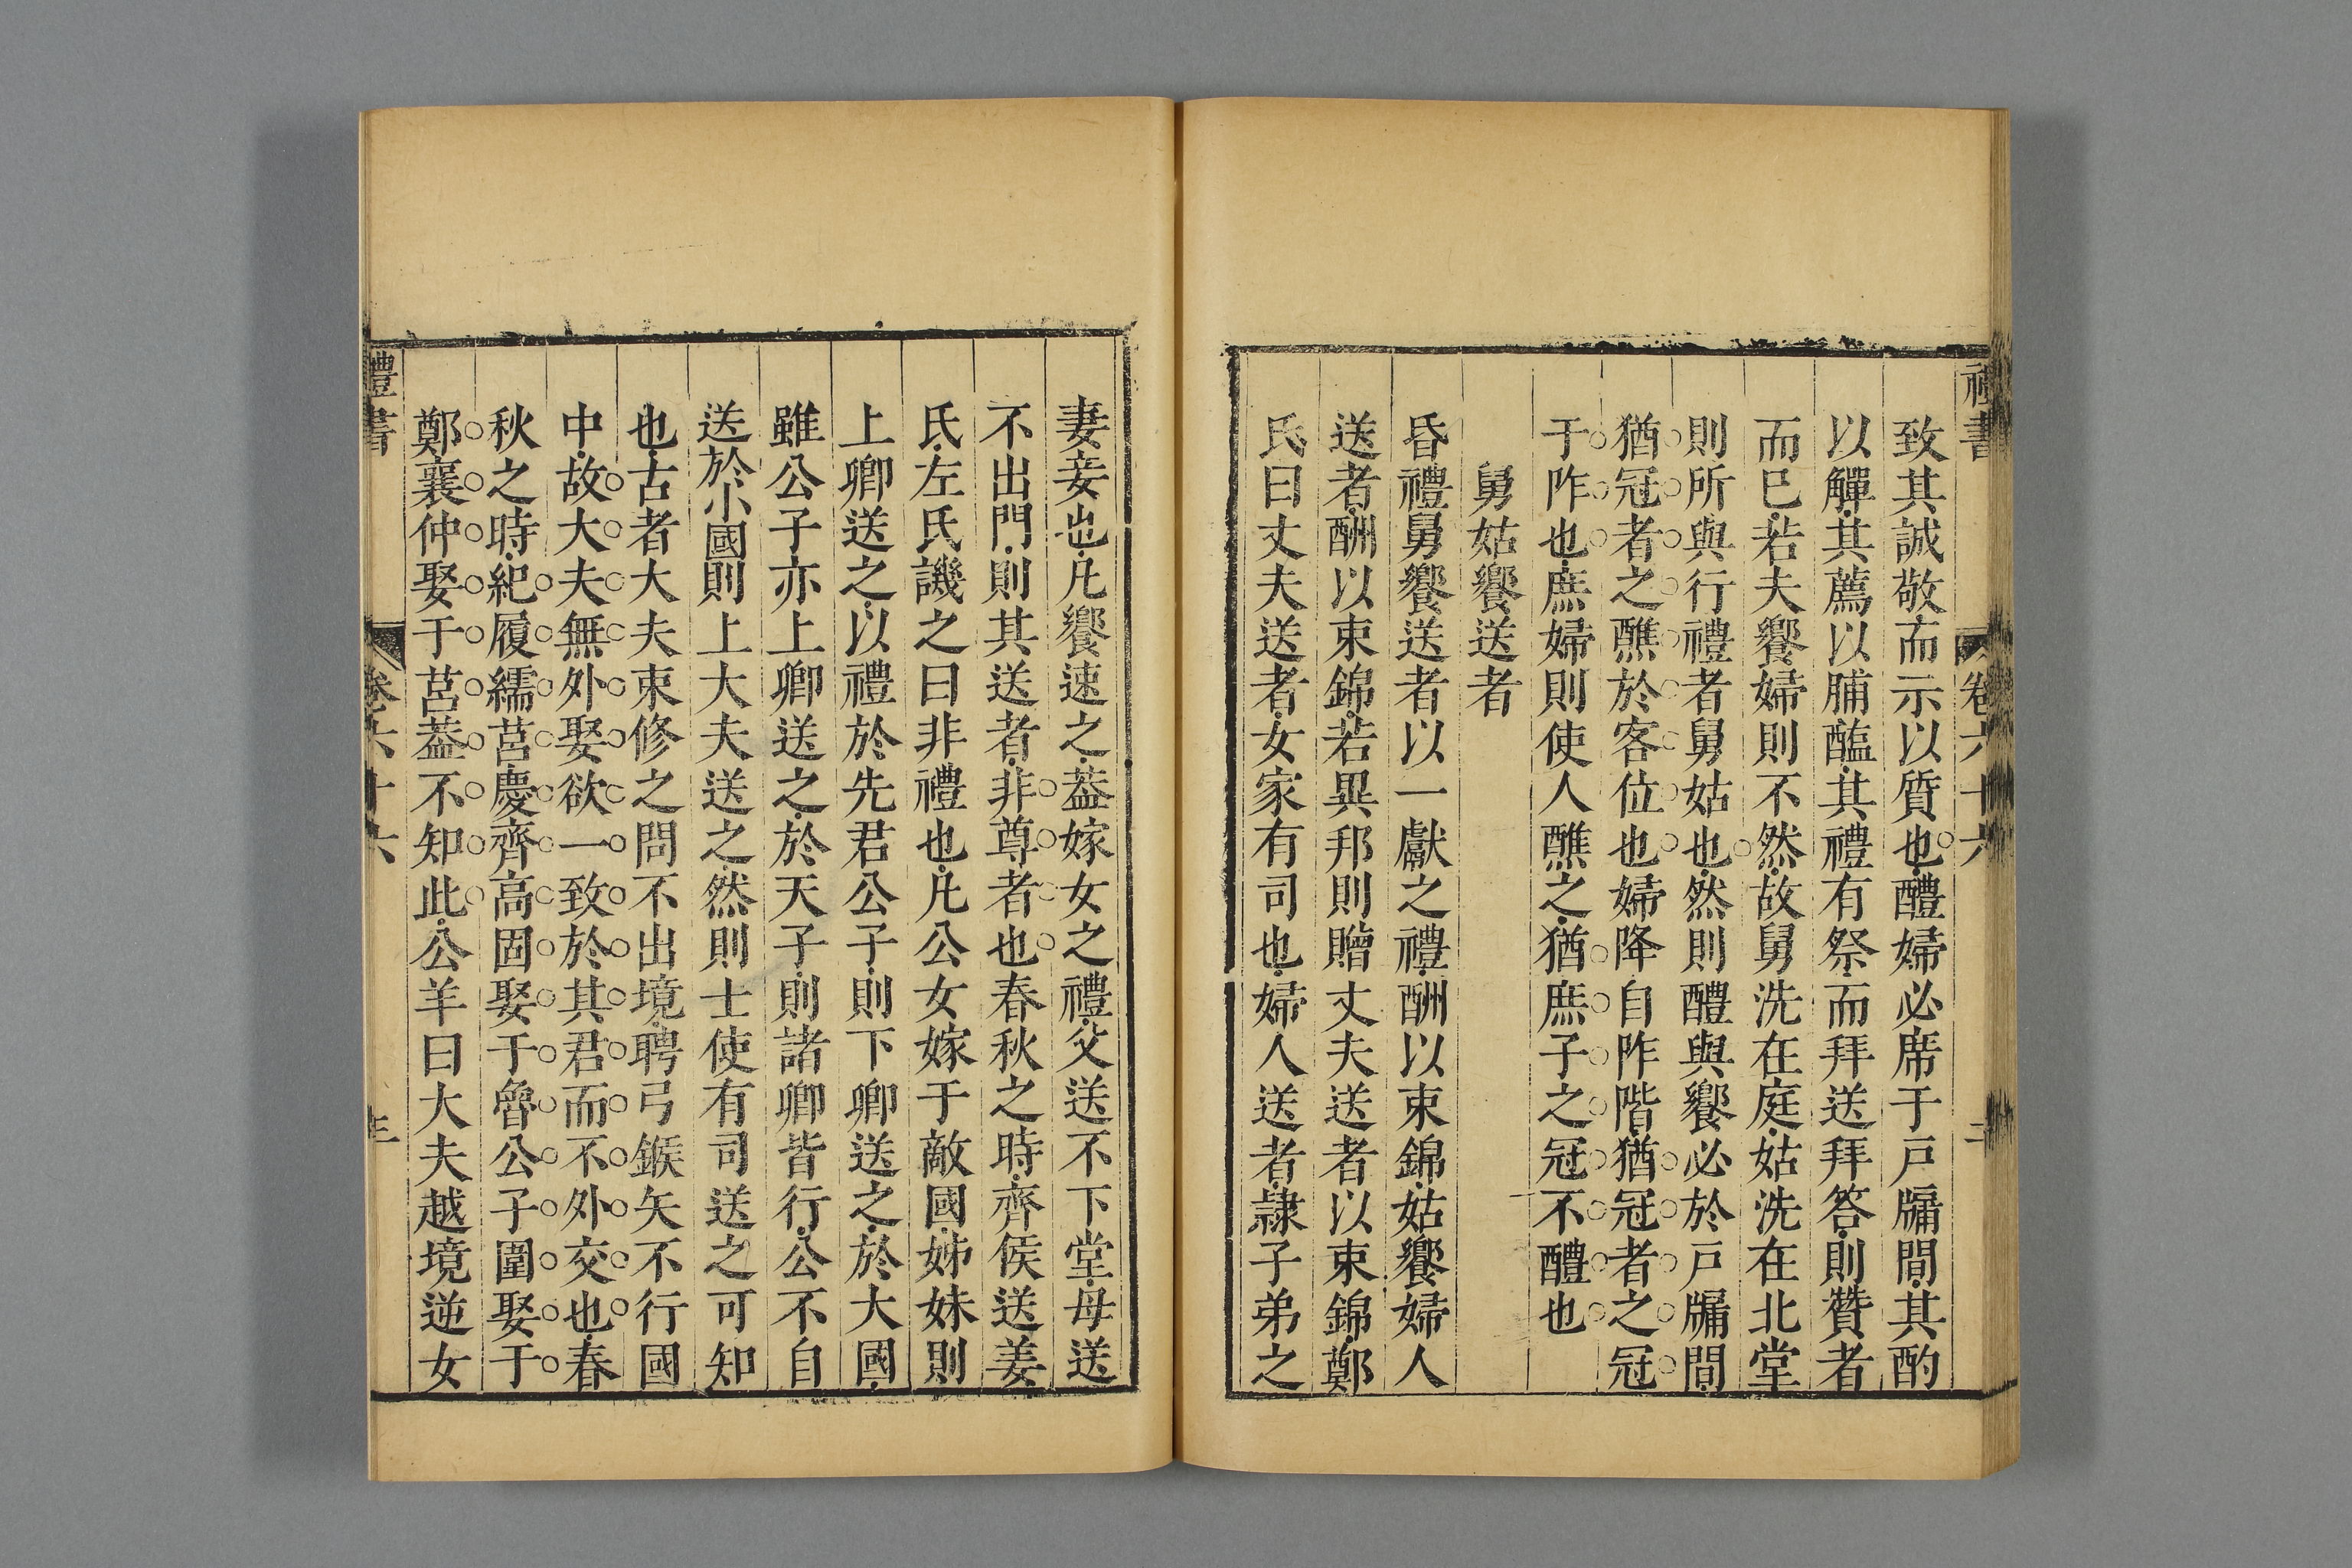 禮書 卷六十六 二
致其誠敬而示以質也醴婦必席于戸牖間其酌
以觶其薦以脯醢其禮有祭而拜送拜答則贊者
而已若夫饗婦則不然故舅洗在庭姑洗在北堂
則所與行禮者舅姑也然則醴與饗必於戸牖間
猶冠者之醮於客位也婦降自阼階猶冠者之冠
于阼也庶婦則使人醮之猶庶子之冠不醴也
舅姑饗送者
昏禮舅饗送者以一獻之禮酬以束錦姑饗婦人
送者酬以束錦若異邦則贈丈夫送者以束錦鄭
氏曰丈夫送者女家有司也婦人送者隷子弟之
妻妾也凡饗速之葢嫁女之禮父送不下堂母送
不出門則其送者非尊者也春秋之時齊侯送姜
氏左氏譏之曰非禮也凡公女嫁于敵國姊妹則
上卿送之以禮於先君公子則下卿送之於大國
雖公子亦上卿送之於天子則諸卿皆行公不自
送於小國則上大夫送之然則士使有司送之可知
也古者大夫束修之問不出境聘弓鍭矢不行國
中故大夫無外娶欲一致於其君而不外交也春
秋之時紀履繻莒慶齊高固娶于魯公子圍娶于
鄭襄仲娶于莒葢不知此公羊曰大夫越境逆女
禮書 卷六十六 三